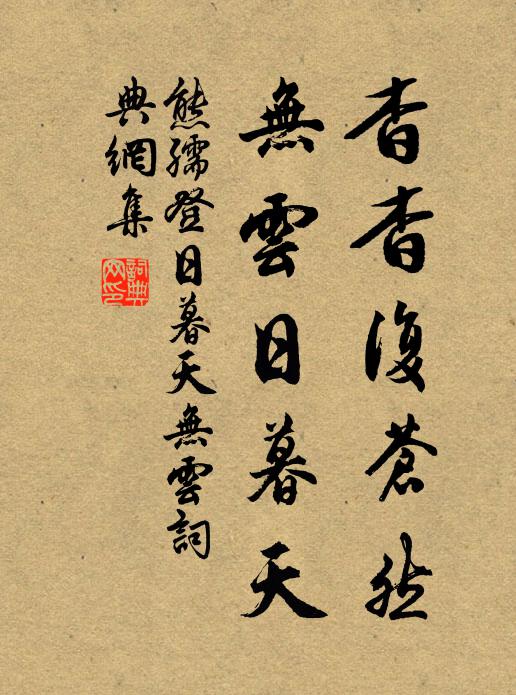 杳杳復蒼然
無雲日暮天
熊孺登日暮天無雲詞
典網集
詞典網印